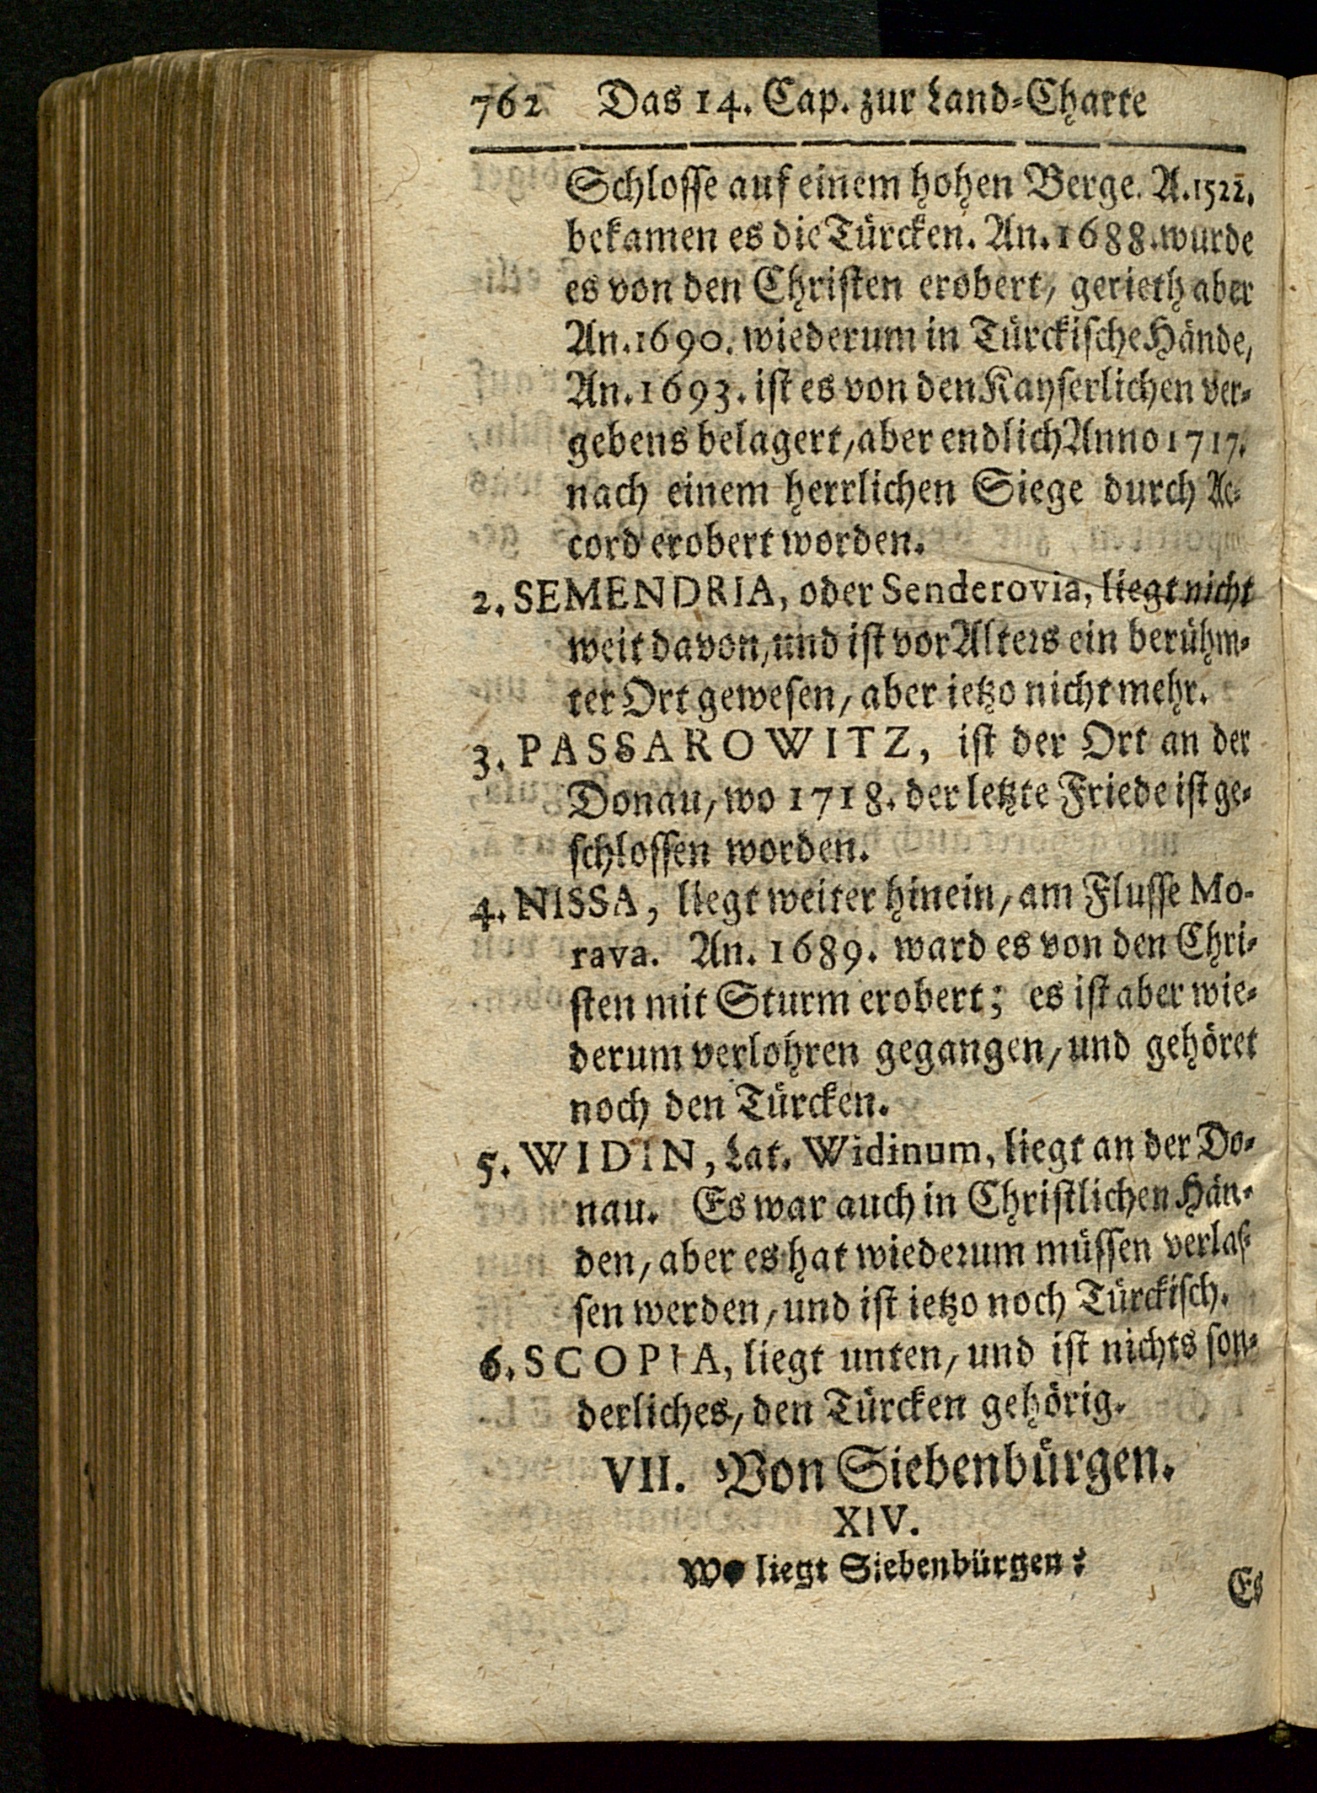 762 Das 14. Cap. zur Land-Charte
Schlosse auf einem hohen Berge. A. 1522.
bekamen es die Türcken. An. 1688. wurde
es von den Christen erobert, gerieth aber
An. 1690. wiederum in Türckische Hände,
An. 1693. ist es von den Kayserlichen ver-
gebens belagert, aber endlich Anno 1717.
nach einem herrlichen Siege durch Ac-
cord erobert worden.
2. SEMENDRIA, oder Senderovia, liegt nicht
weit davon, und ist vor Alters ein berühm-
ter Ort gewesen, aber ietzo nicht mehr.
3. PASSAROWITZ, ist der Ort an der
Donau, wo 1718. der letzte Friede ist ge-
schlossen worden.
4. NISSA, liegt weiter hinein, am Flusse Mo-
rava. An. 1689. ward es von den Chri-
sten mit Sturm erobert; es ist aber wie-
derum verlohren gegangen, und gehöret
noch den Türcken.
5. WIDIN, Lat. Widinum, liegt an der Do-
nau. Es war auch in Christlichen Hän-
den, aber es hat wiederum müssen verlas-
sen werden, und ist ietzo noch Türckisch.
6. SCOPIA, liegt unten, und ist nichts son-
derliches, den Türcken gehörig.
VII. Von Siebenbürgen.
XIV.
Wo liegt Siebenbürgen?
Es